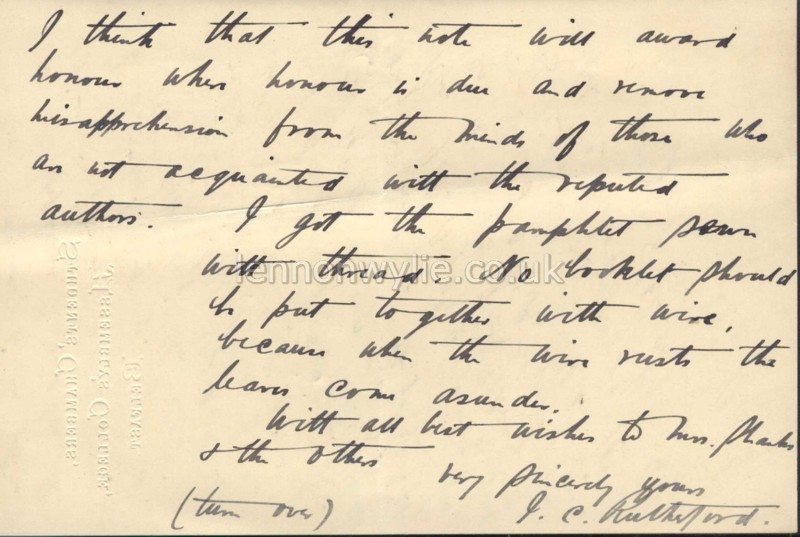 I think that this note will award
honour where honour is due and remove
misapprehension from the minds of those who
are not acquainted with the reputed
authors. I got the pamphlet sewn
with thread. No booklet should
be put together with wire,
because when the wire rusts the
leaves come asunder.
With all best wishes to Mrs. Shanks
& the others
very sincerely yours
J. C. Rutherford.
(turn over)
STUDENTS' CHAMBERS,
ASSEMBLY'S COLLEGE,
BELFAST.
lennonwylie.co.uk